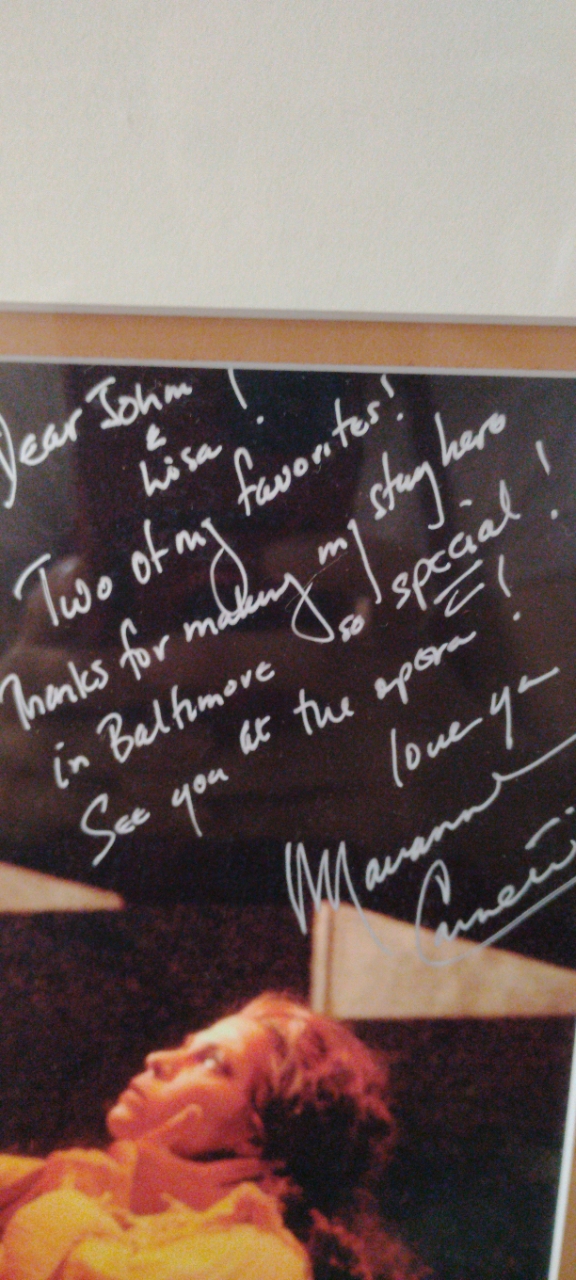 Dear John
& Lisa!
Two of my favorites!
Thanks for making my stay here
in Baltimore so special!
See you at the opera!
love ya
Marianne
Cornetti